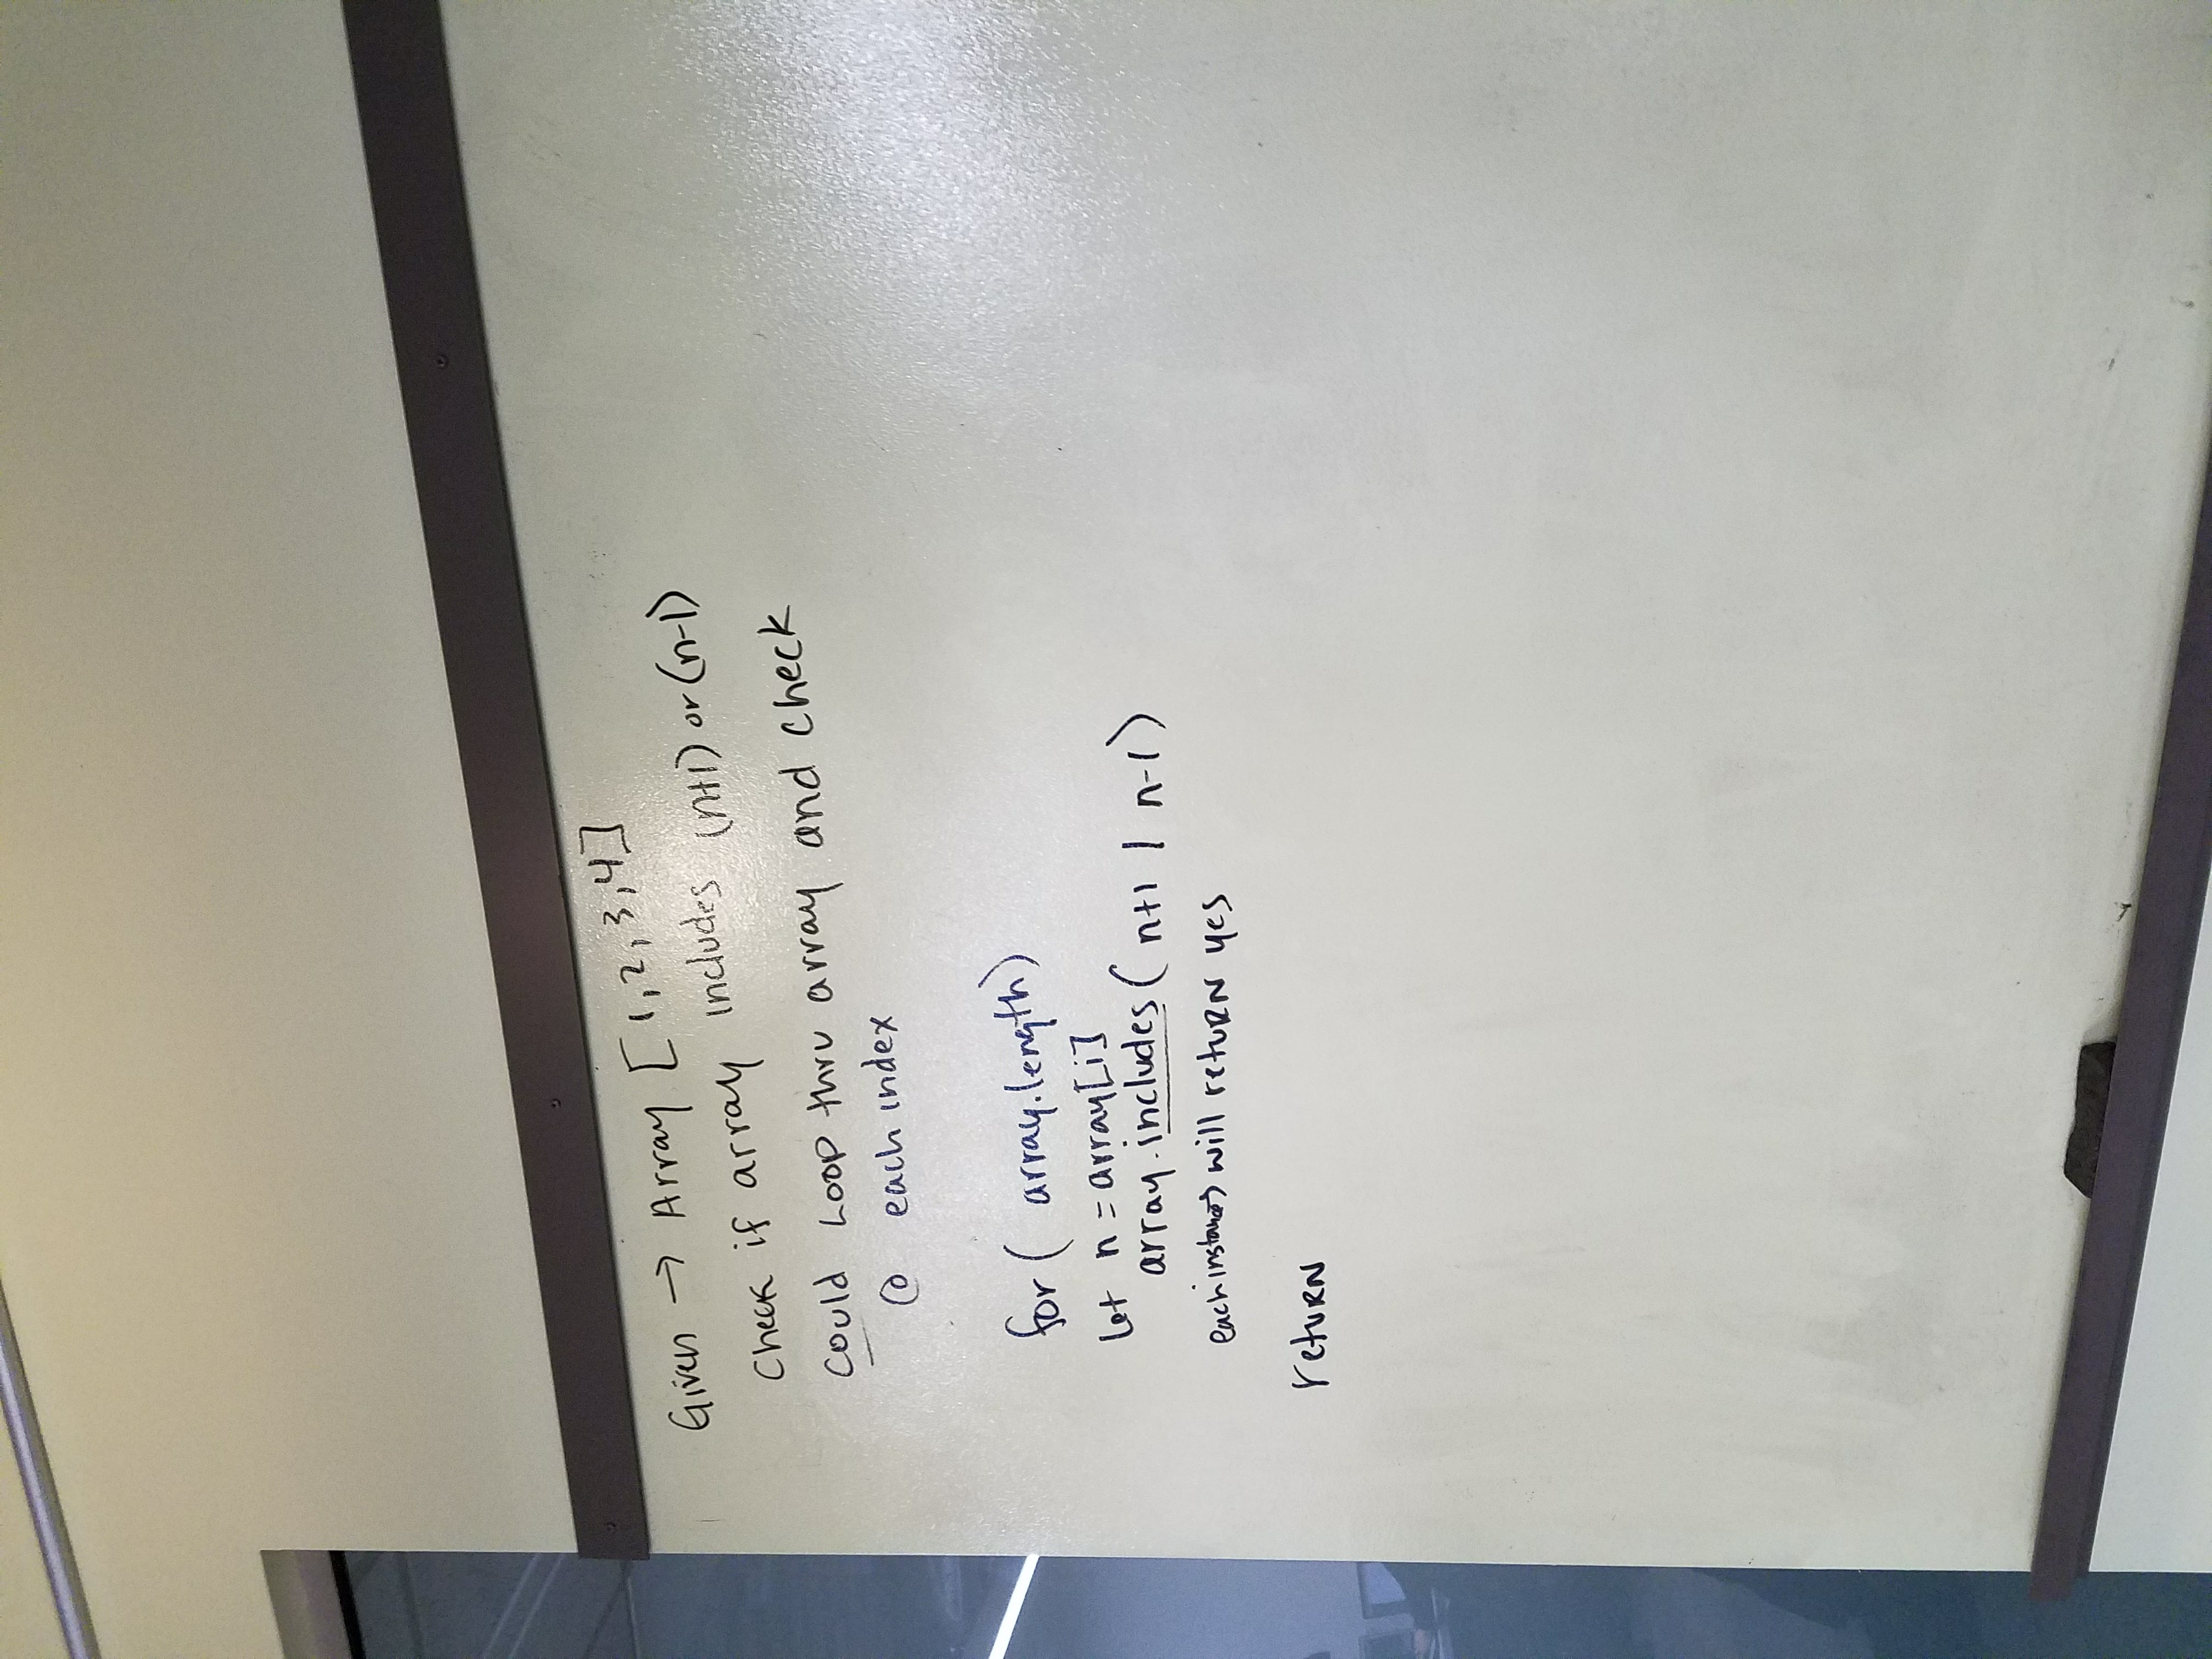 Given → Array [1,2,3,4]
Check if array includes (n+1) or (n-1)
Could Loop thru array and check
@ each index
for ( array.length)
let n = array[i]
array.includes ( n+1 | n-1 )
each will return yes
return